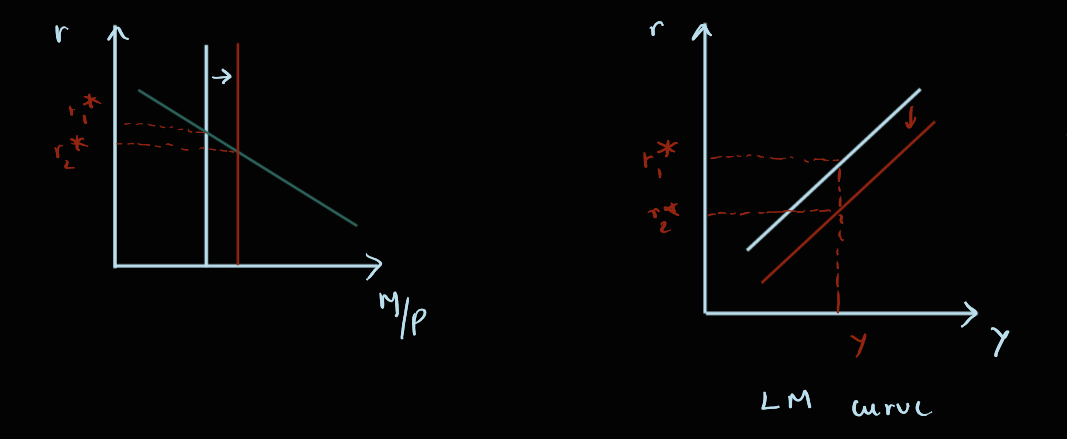 r
r₁*
r₂*
M/P
r
r₁*
r₂*
Y
Y
LM curve